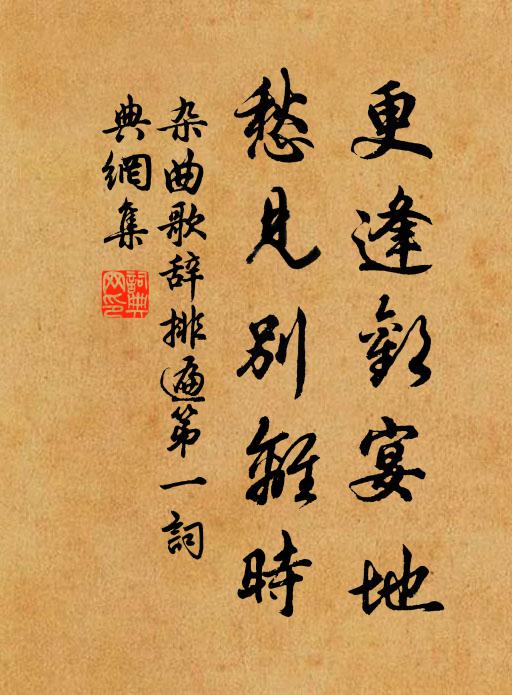 更逢歡宴地
愁見別離時
杂曲歌辞排遍第一詞
典網集
詞典
网印